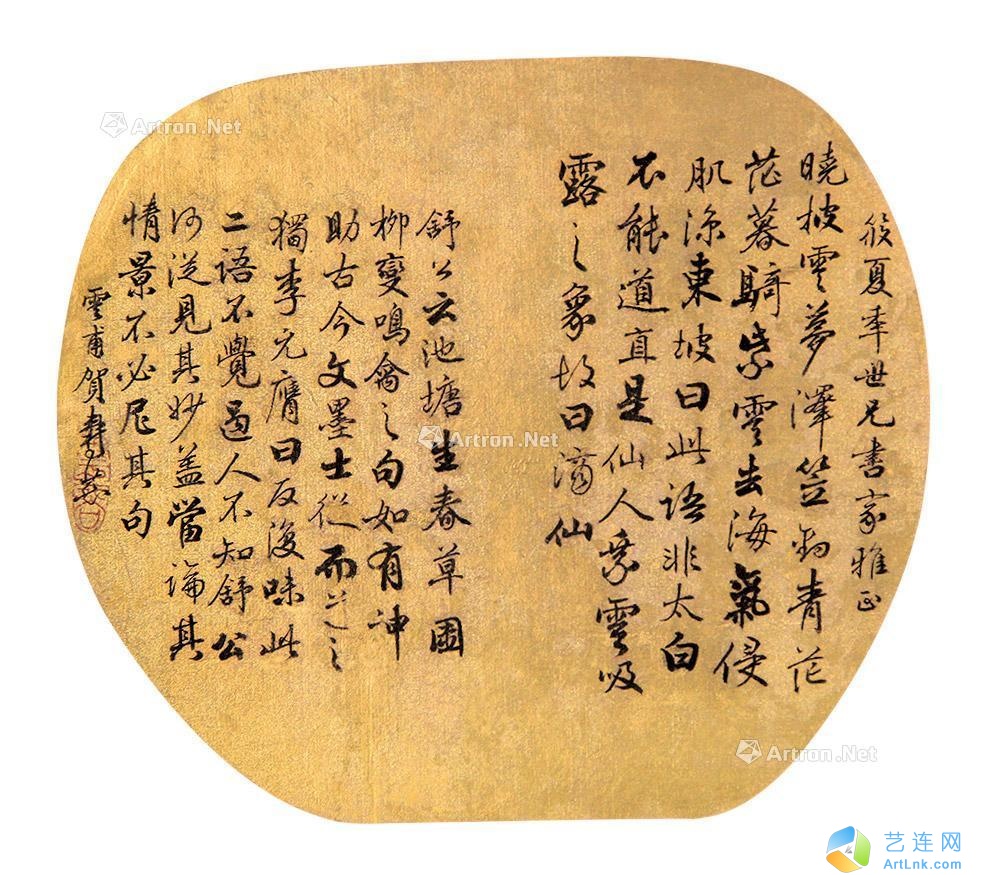 筱夏年世兄書家雅正
曉披雲夢澤笠釣青茫
茫暮騎紫雲去海氣侵
肌涼東坡曰此語非太白
不能道直是仙人乘雲吸
露之象故曰謫仙
舒公云池塘生春草園
柳變鳴禽之句如有神
助古今文墨士從而道之
獨李元膺曰反復味此
二語不覺過人不知舒公
何從見其妙蓋當論其
情景不必尼其句
雲甫賀壽慈
Artron.Net
Artron.Net
Artron.Net
艺连网
ArtLnk.com